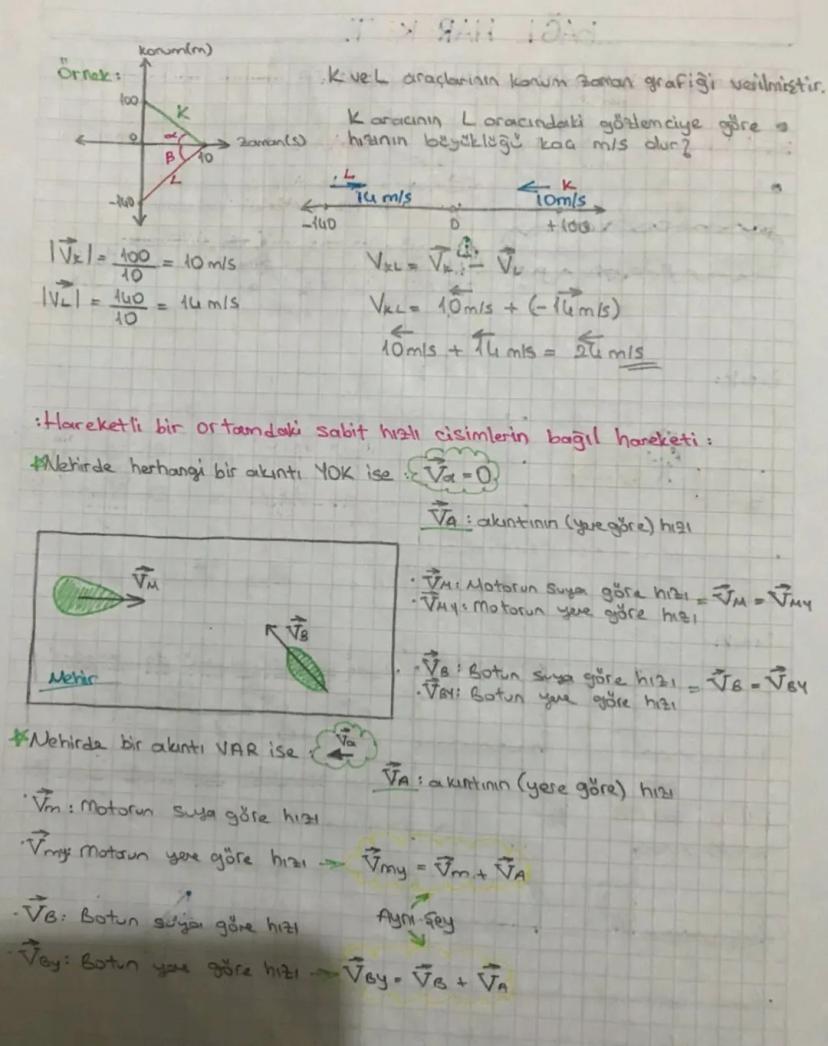 Örnek:
konum(m)
100
K
0
α
B
10
zaman(s)
L
-140
K ve L araçlarının konum zaman grafiği verilmiştir.
K aracının L aracındaki gözlemciye göre
hızının büyüklüğü kaç m/s dur?
L
14 m/s
K
10m/s
-140
0
+100
|VK| = 100/10 = 10 m/s
|VL| = 140/10 = 14 m/s
VKL = VK - VL
VKL = 10m/s + (-14m/s)
10m/s + 14 m/s = 24 m/s
:Hareketli bir ortamdaki sabit hızlı cisimlerin bağıl hareketi:
*Nehirde herhangi bir akıntı YOK ise: Va = 0
VA : akıntının (yere göre) hızı
VM
VB
Nehir
· VM: Motorun suya göre hızı = VM = VMY
· VMY: Motorun yere göre hızı
· VB : Botun suya göre hızı = VB = VBY
· VBY: Botun yere göre hızı
*Nehirde bir akıntı VAR ise: Va
VA : akıntının (yere göre) hızı
· Vm : Motorun suya göre hızı
· Vmy: Motorun yere göre hızı → Vmy = Vm + VA
· VB: Botun suya göre hızı
Aynı şey
· VBy: Botun yere göre hızı → VBy = VB + VA